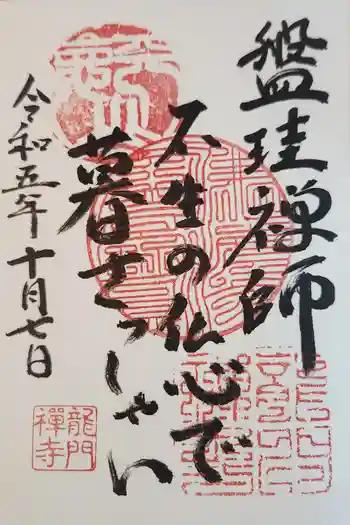 盤珪禅師
不生の仏心で
暮さっしゃい
令和五年十月七日
龍門
禪寺